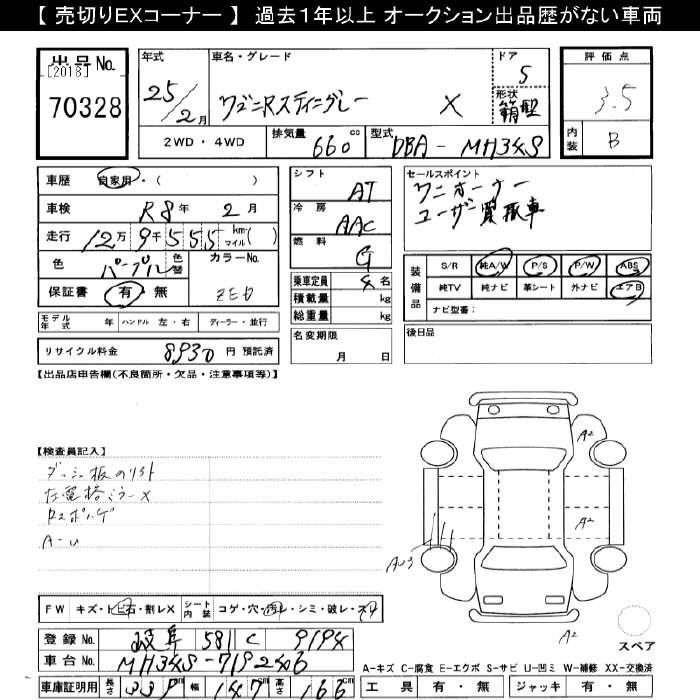 【 売切りEXコーナー 】 過去1年以上 オークション出品歴がない車両
出品No.
[2018]
70328
年式
25/2月
車名・グレード
ワゴンRスティングレー X
ドア
5
形状
箱型
評価点
3.5
内装
B
2WD・4WD
排気量 660 cc
型式 DBA-MH34S
車歴 自家用・( )
車検 R8年 2月
走行 12万9千555 km マイル( )
色 パープル 色替
カラーNo. ZED
保証書 有・無
シフト AT
冷房 AAC
燃料 G
乗車定員 4名
積載量 kg
総重量 kg
セールスポイント
ワンオーナー
ユーザー買取車
装備品
S/R 純A/W P/S P/W ABS
純TV 純ナビ 革シート 外ナビ エアB
ナビ型番:
モデル年式 年 ハンドル 左・右 ディーラー・並行
リサイクル料金 8930 円 預託済
名変期限 月 日
後日品
【出品店申告欄(不良箇所・欠品・注意事項等)】
【検査員記入】
ダッシュ板のリフト
左電格ミラーX
A-U
A2
A2
AU3
A2
スペア
FW キズ・トビ石・割レX シート内装 コゲ・穴・汚レ・シミ・破レ・スレ
登録No. 岐阜 581 C 9194
車台No. MH34S-719246
車庫証明用 長さ 339 幅 147 高さ 166
A-キズ C-腐食 E-エクボ S-サビ U-凹ミ W-補修 XX-交換済
工具 有・無 ジャッキ 有・無